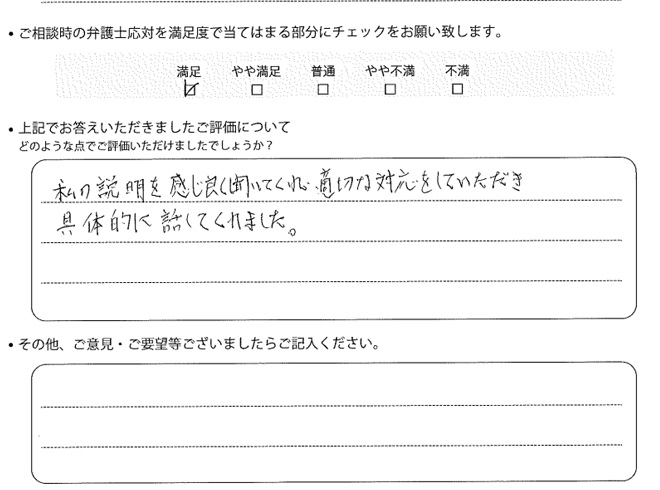 • ご相談時の弁護士応対を満足度で当てはまる部分にチェックをお願い致します。
満足 やや満足 普通 やや不満 不満
☑ □ □ □ □
• 上記でお答えいただきましたご評価について
どのような点でご評価いただけましたでしょうか？
私の説明を感じ良く聞いてくれ、適切な対応をしていただき
具体的に話してくれました。
• その他、ご意見・ご要望等ございましたらご記入ください。